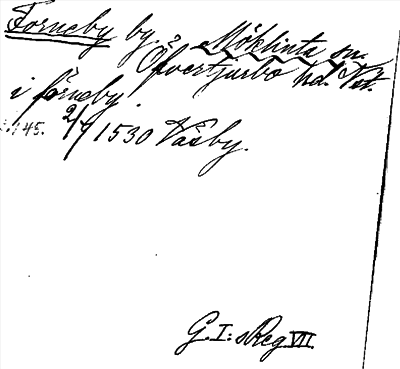 Forneby by. Möklinta sn.
Öfvertjurbo hd. Vst.
i forneby.
s. 145. 2/7 1530 Väsby.
G. I:s Reg VII.